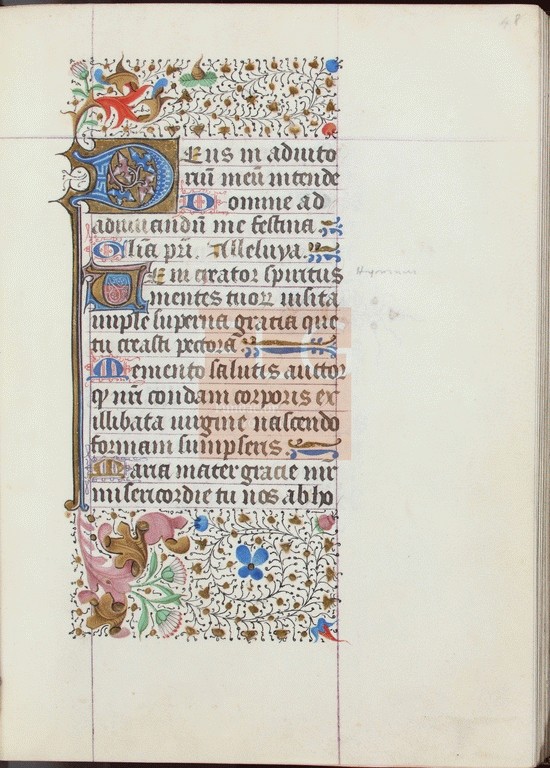 48
Deus in adiuto
riū meū intende
Domine ad
adiuuandū me festina.
Glīa pr̄i. Alleluya.
Veni creator spiritus
mentes tuoꝝ uisita
imple superna gracia que
tu creasti pectora
Memento salutis auctor
qͩ nr̄i condam corporis ex
illibata uirgine nascendo
formam sumpseris.
Maria mater gracie mr̄
misericordie tu nos ab ho